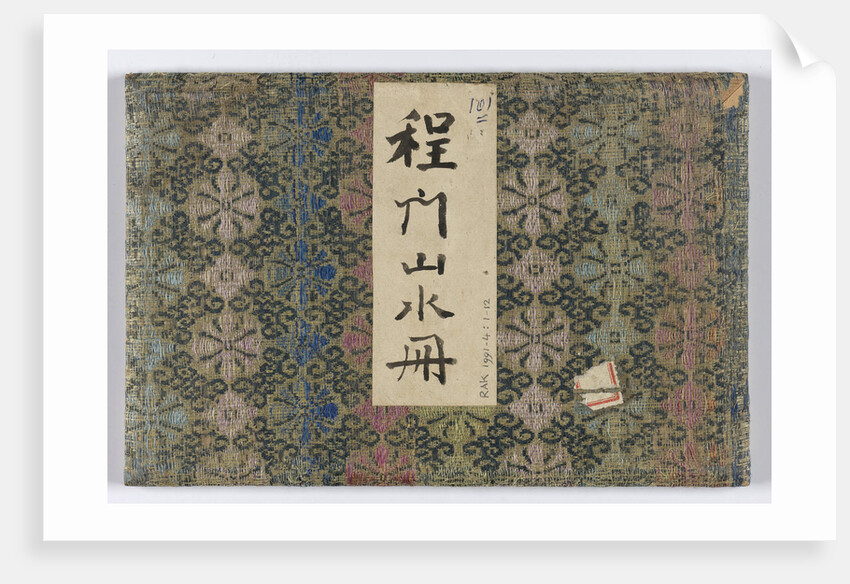 程门山水册
RAK 1991-4:1-12